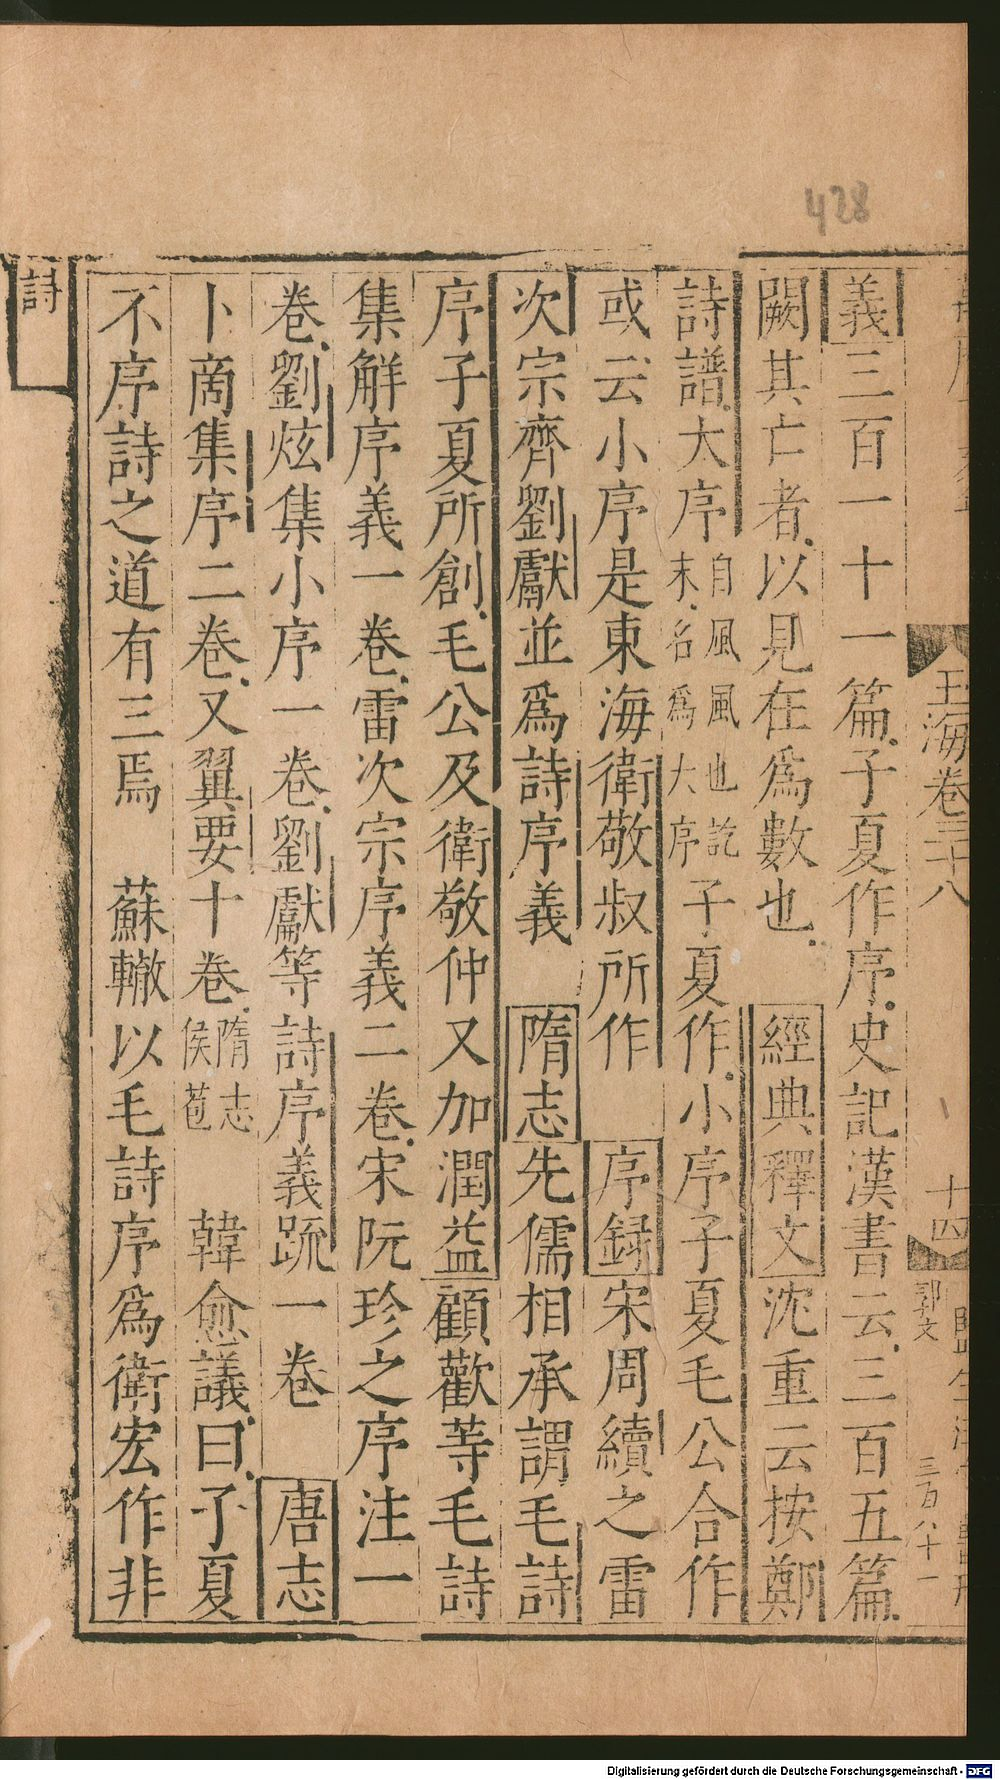 428
玉海卷三十八
十四
郭文
三百八十一
義三百一十一篇子夏作序史記漢書云三百五篇
闕其亡者以見在爲數也 經典釋文沈重云按鄭
詩譜大序自風風也訖末名爲大序子夏作小序子夏毛公合作
或云小序是東海衛敬叔所作 序録宋周續之雷
次宗齊劉瓛並爲詩序義 隋志先儒相承謂毛詩
序子夏所創毛公及衛敬仲又加潤益顧歡等毛詩
集解序義一卷雷次宗序義二卷宋阮珍之序注一
卷劉炫集小序一卷劉瓛等詩序義疏一卷 唐志
卜商集序二卷又翼要十卷隋志侯苞 韓愈議曰子夏
不序詩之道有三焉 蘇轍以毛詩序爲衛宏作非
詩
Digitalisierung gefördert durch die Deutsche Forschungsgemeinschaft - DFG